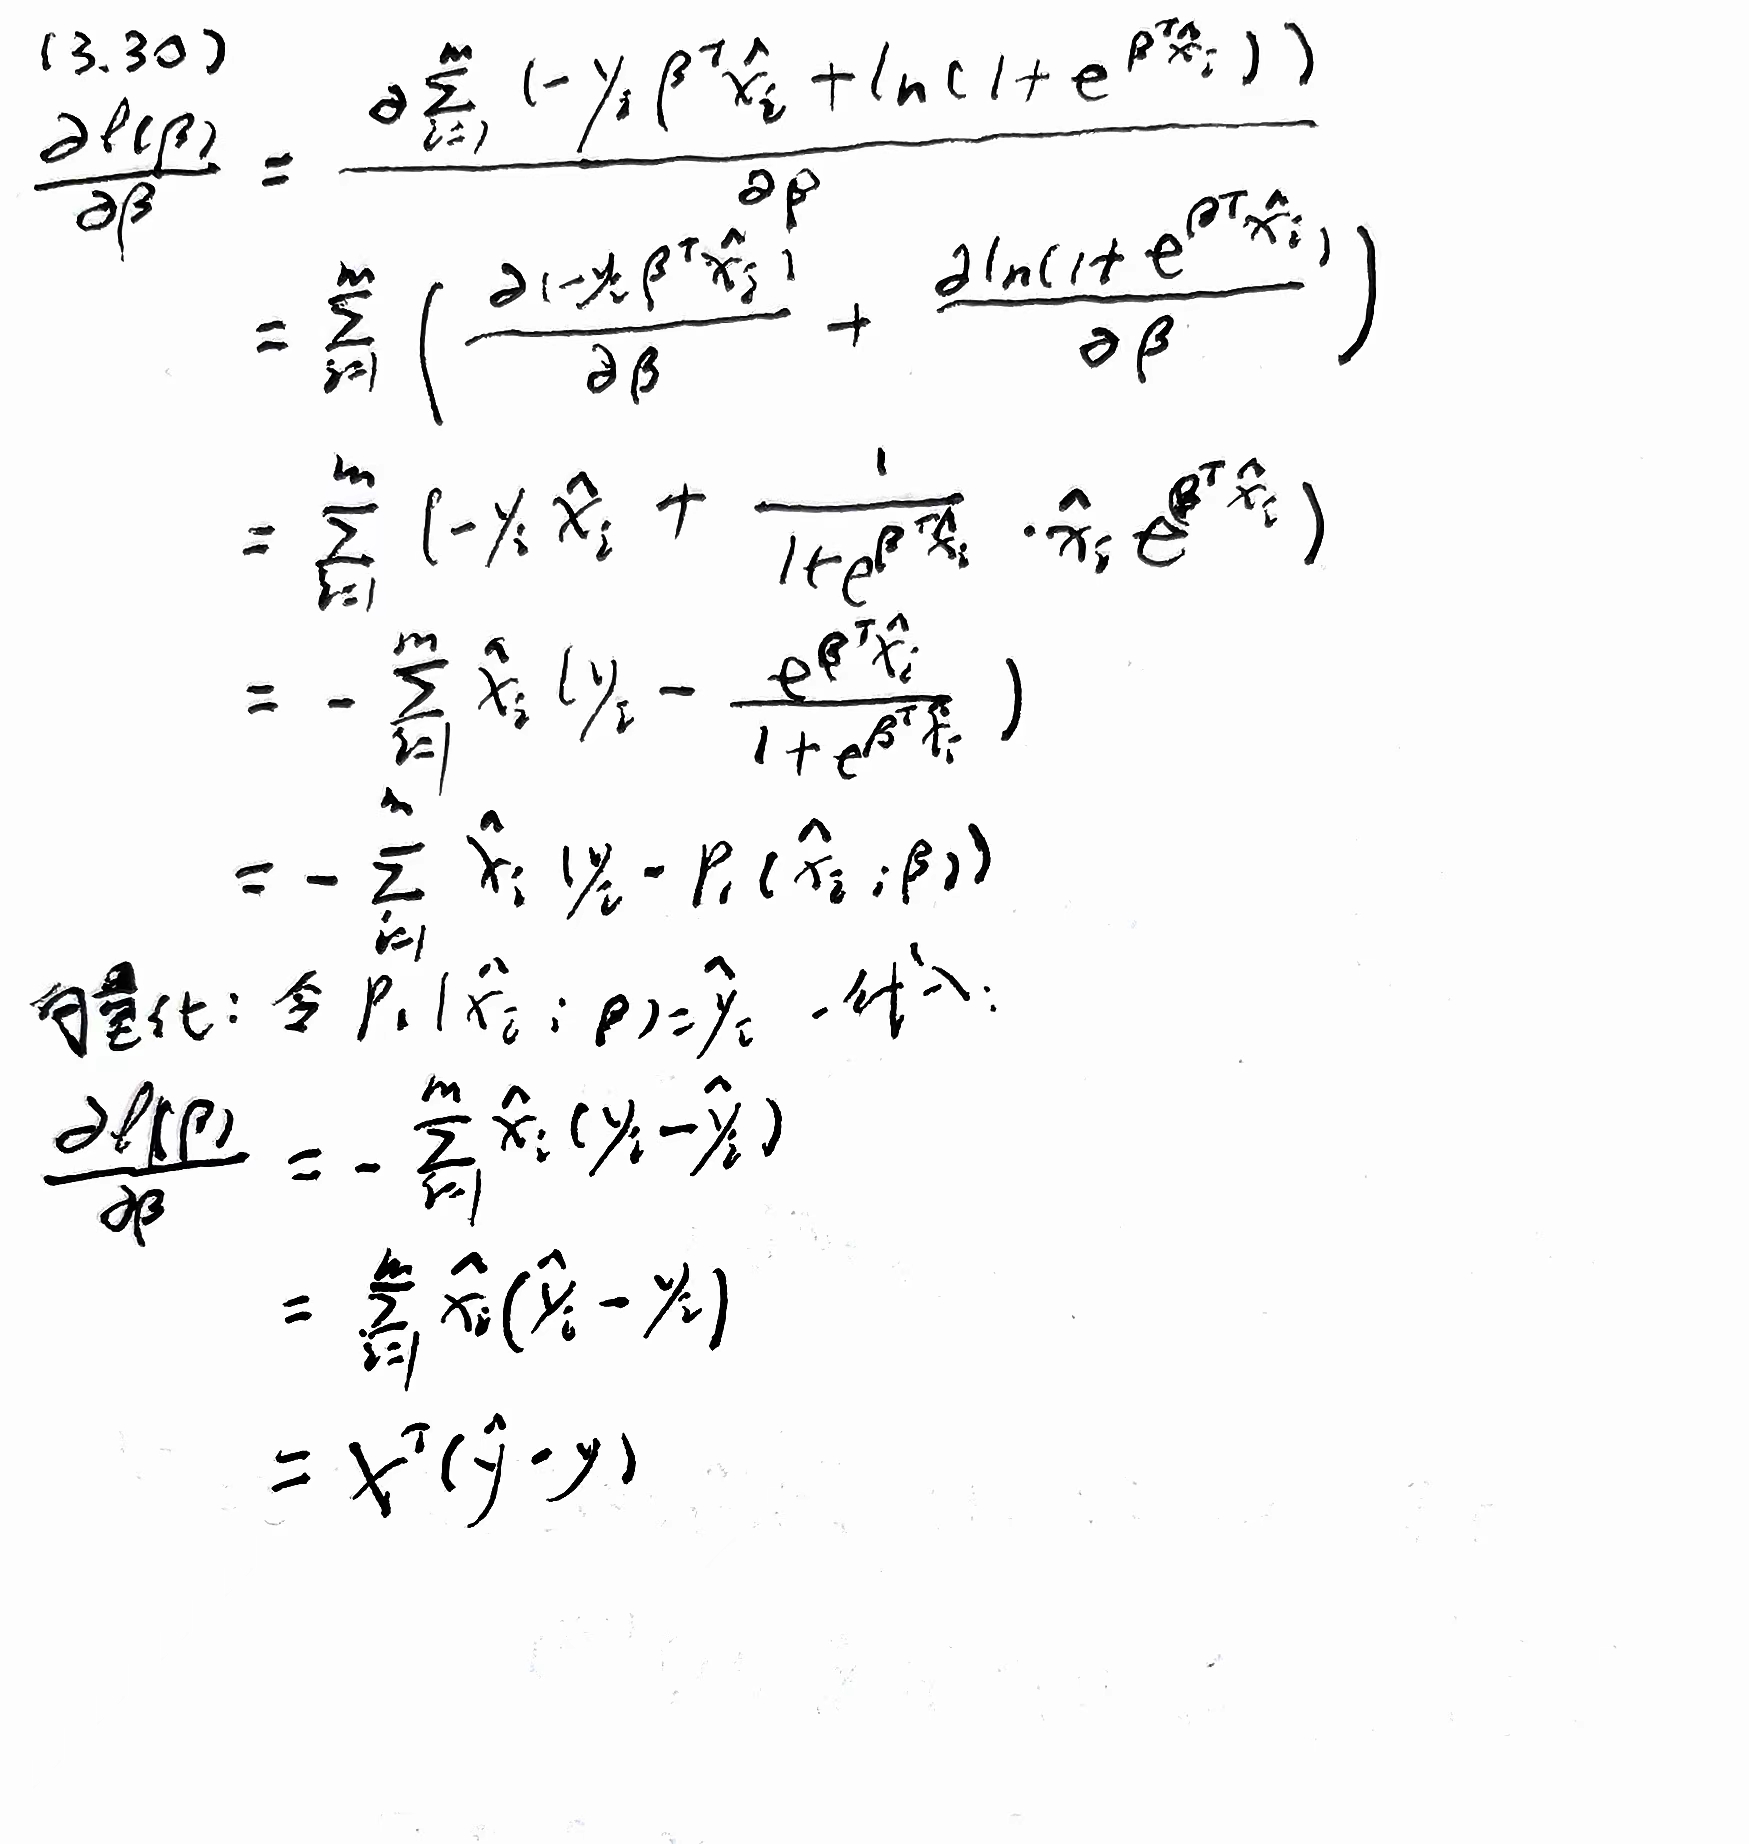 (3.30)
∂ℓ(β)/∂β = ∂∑_{i=1}^{m} (-y_i β^T x̂_i + ln(1+e^{β^T x̂_i}))/∂β
= ∑_{i=1}^{m} ( ∂(-y_i β^T x̂_i)/∂β + ∂ln(1+e^{β^T x̂_i})/∂β )
= ∑_{i=1}^{m} (-y_i x̂_i + 1/(1+e^{β^T x̂_i}) · x̂_i e^{β^T x̂_i})
= -∑_{i=1}^{m} x̂_i (y_i - e^{β^T x̂_i}/(1+e^{β^T x̂_i}))
= -∑_{i=1}^{m} x̂_i (y_i - p_1(x̂_i;β))
向量化: 令 p_1(x̂_i;β)=ŷ_i, 代入:
∂ℓ(β)/∂β = -∑_{i=1}^{m} x̂_i (y_i - ŷ_i)
= ∑_{i=1}^{m} x̂_i (ŷ_i - y_i)
= X^T(ŷ - y)